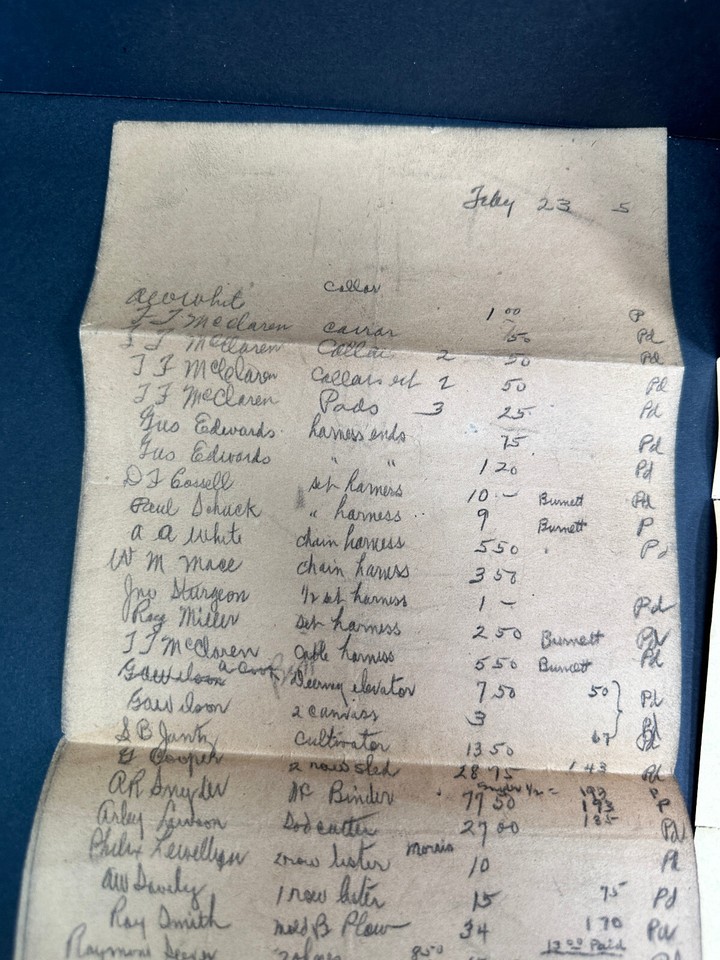 Feby 23 5
White collar 1 00 P
F F McClaren 50 Pd
F F McClaren Collar 2 50 Pd
F F McClaren Collars 2 50 Pd
F F McClaren Pads 3 25 Pd
Gus Edwards harness ends 75 Pd
Gus Edwards " " 1 20 Pd
D F Cossell set harness 10 - Burnett Pd
Paul Schuck " harness 9 Burnett P
a a White chain harness 5 50 Pd
W M Mace chain harness 3 50
Jno Sturgeon 1/2 set harness 1 - Pd
Roy Miller set harness 2 50 Burnett Pd
F F McClaren harness 5 50 Burnett Pd
Deering elevator 7 50 50 Pd
2 canvass 3 Pd
S B Jantz Cultivator 13 50 67 Pd
G Cooper 2 row sled 28 75 1 43 Pd
AR Snyder Binder 77 50 193 P
Arley Sod cutter 27 00 135 Pd
2 row lister Morris 10 Pd
AW 1 row lister 15 75 Pd
Roy Smith Mold B Plow 34 1 70 Pd
Raymond 8 50 12 00 Paid